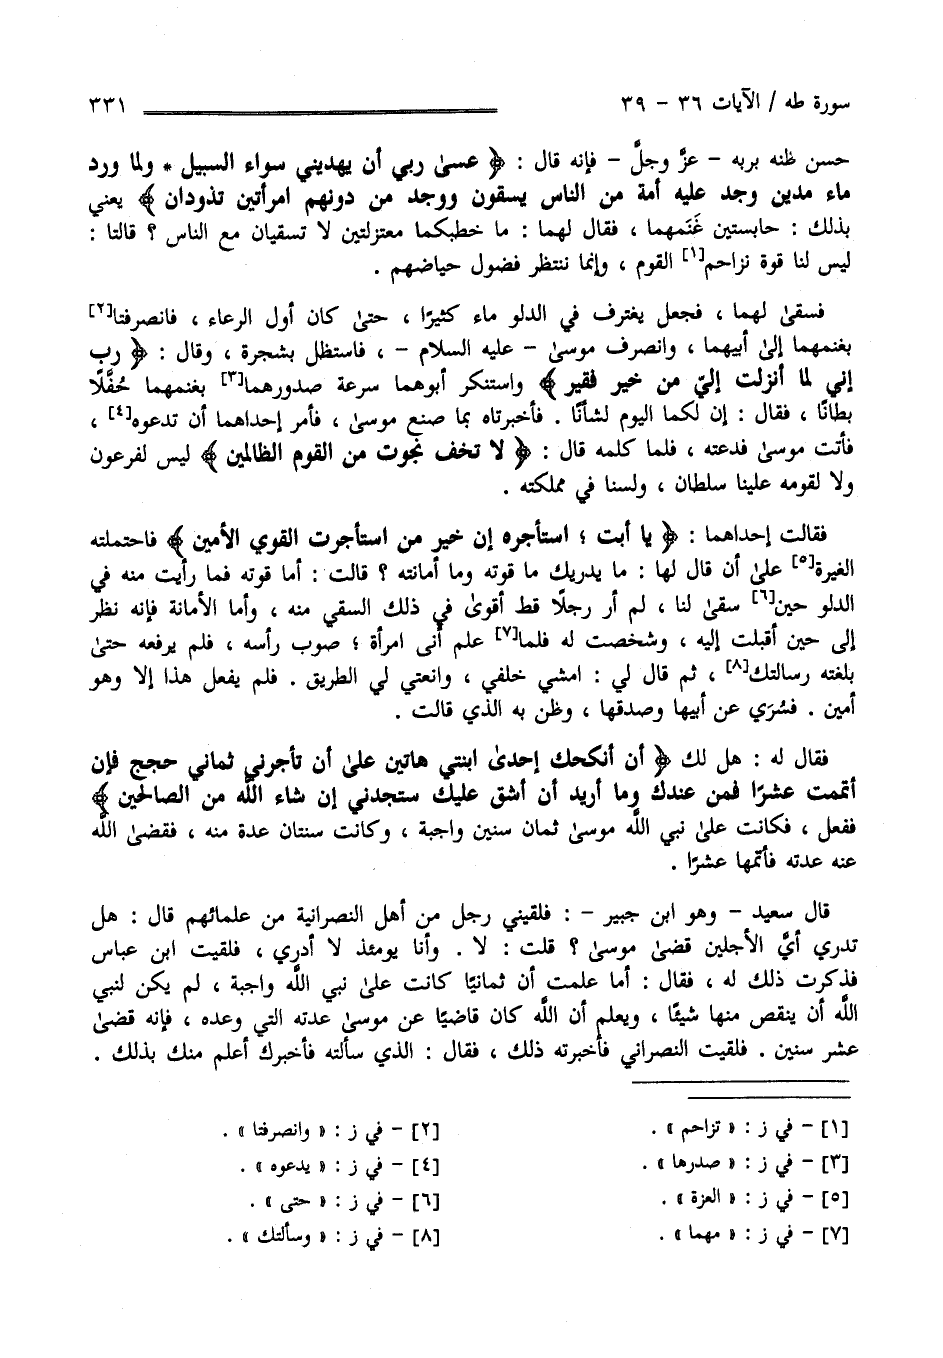 سورة طه / الآيات ٣٦ - ٣٩
٣٣١
حسن ظنه بربه - عزَّ وجلَّ - فإنه قال : ﴿ عسىٰ ربي أن يهديني سواء السبيل * ولما ورد
ماء مدين وجد عليه أمة من الناس يسقون ووجد من دونهم امرأتين تذودان ﴾ يعني
بذلك : حابستين غَنَمهما ، فقال لهما : ما خطبكما معتزلتين لا تسقيان مع الناس ؟ قالتا :
ليس لنا قوة نزاحم[١] القوم ، وإنما ننتظر فضول حياضهم .
فسقىٰ لهما ، فجعل يغترف في الدلو ماء كثيرًا ، حتىٰ كان أول الرعاء ، فانصرفتا[٢]
بغنمهما إلىٰ أبيهما ، وانصرف موسىٰ - عليه السلام - ، فاستظل بشجرة ، وقال : ﴿ رب
إني لما أنزلت إليّ من خير فقير ﴾ واستنكر أبوهما سرعة صدورهما[٣] بغنمهما حُفَّلًا
بطانًا ، فقال : إن لكما اليوم لشأنًا . فأخبرتاه بما صنع موسىٰ ، فأمر إحداهما أن تدعوه[٤] ،
فأتت موسىٰ فدعته ، فلما كلمه قال : ﴿ لا تخف نجوت من القوم الظالمين ﴾ ليس لفرعون
ولا لقومه علينا سلطان ، ولسنا في مملكته .
فقالت إحداهما : ﴿ يا أبت ؛ استأجره إن خير من استأجرت القوي الأمين ﴾ فاحتملته
الغيرة[٥] علىٰ أن قال لها : ما يدريك ما قوته وما أمانته ؟ قالت : أما قوته فما رأيت منه في
الدلو حين[٦] سقىٰ لنا ، لم أر رجلًا قط أقوىٰ في ذلك السقي منه ، وأما الأمانة فإنه نظر
إلى حين أقبلت إليه ، وشخصت له فلما[٧] علم أنى امرأة ؛ صوب رأسه ، فلم يرفعه حتىٰ
بلغته رسالتك[٨] ، ثم قال لي : امشي خلفي ، وانعتي لي الطريق . فلم يفعل هذا إلا وهو
أمين . فسُرِّي عن أبيها وصدقها ، وظن به الذي قالت .
فقال له : هل لك ﴿ أن أنكحك إحدىٰ ابنتي هاتين علىٰ أن تأجرني ثماني حجج فإن
أتممت عشرًا فمن عندك وما أريد أن أشق عليك ستجدني إن شاء اللَّه من الصالحين ﴾
ففعل ، فكانت علىٰ نبي اللَّه موسىٰ ثمان سنين واجبة ، وكانت سنتان عدة منه ، فقضىٰ اللَّه
عنه عدته فأتمّها عشرًا .
قال سعيد - وهو ابن جبير - : فلقيني رجل من أهل النصرانية من علمائهم قال : هل
تدري أيَّ الأجلين قضىٰ موسىٰ ؟ قلت : لا . وأنا يومئذ لا أدري ، فلقيت ابن عباس
فذكرت ذلك له ، فقال : أما علمت أن ثمانيًا كانت علىٰ نبي اللَّه واجبة ، لم يكن لنبي
اللَّه أن ينقص منها شيئًا ، ويعلم أن اللَّه كان قاضيًا عن موسىٰ عدته التي وعده ، فإنه قضىٰ
عشر سنين . فلقيت النصراني فأخبرته ذلك ، فقال : الذي سألته فأخبرك أعلم منك بذلك .
[١] - في ز : « تزاحم » .
[٢] - في ز : « وانصرفتا » .
[٣] - في ز : « صدرها » .
[٤] - في ز : « يدعوه » .
[٥] - في ز : « العزة » .
[٦] - في ز : « حتى » .
[٧] - في ز : « مهما » .
[٨] - في ز : « وسألتك » .